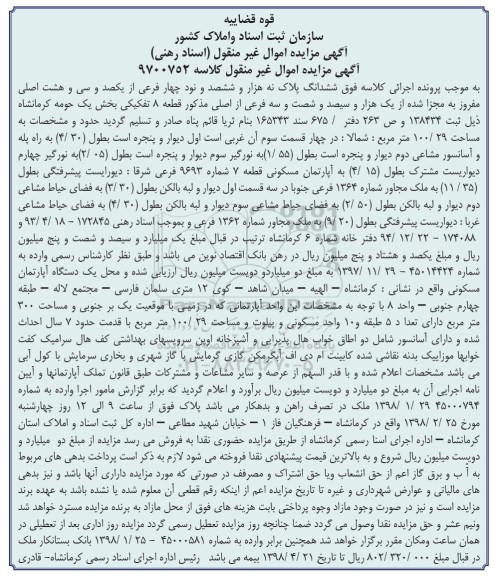 قوه قضاییه
سازمان ثبت اسناد واملاک کشور
آگهی مزایده اموال غیر منقول (اسناد رهنی)
آگهی مزایده اموال غیر منقول کلاسه ۹۷۰۰۷۵۲
به موجب پرونده اجرائی کلاسه فوق ششدانگ پلاک نه هزار و ششصد و نود چهار فرعی از یکصد و سی و هشت اصلی
مفروز به مجزا شده از یک هزار و سیصد و شصت و سه فرعی از اصلی مذکور قطعه ۸ تفکیکی بخش یک حومه کرمانشاه
ذیل ثبت ۱۳۸۴۳۴ و ص ۲۶۳ دفتر / ۶۷۵ سند ۱۶۵۳۴۳ بنام ثریا قائم پناه صادر و تسلیم گردید حدود و مشخصات به
مساحت ۲۹ /۱۰۰ متر مربع : شمالا : در چهار قسمت سوم آن غربی است اول دیوار و پنجره است بطول (۳۰ /۴) به راه پله
و آسانسور مشاعی دوم دیوار و پنجره است بطول (۵۵ /۱)به نورگیر سوم دیوار و پنجره است بطول (۰۵ /۲)به نورگیر چهارم
دیواریست مشترک بطول (۱۵ /۴) به آپارتمان مسکونی قطعه ۷ شماره ۹۶۹۳ فرعی شرقا : دیواریست پیشرفتگی بطول
(۳۵ /۱۱) به ملک مجاور شماره ۱۳۶۴ فرعی جنوبا در سه قسمت اول دیوار و لبه بالکن بطول (۳۰ /۴) به فضای حیاط مشاعی
دوم دیوار و لبه بالکن بطول (۵۰ /۲) به فضای حیاط مشاعی سوم دیوار و لبه بالکن بطول (۳۰ /۴) به فضای حیاط مشاعی
غربا : دیواریست پیشرفتگی بطول (۲۰ /۹) به ملک مجاور شماره ۱۳۶۲ فرعی و بموجب اسناد رهنی ۱۷۲۸۴۵ – ۱۸ /۴ /۹۳ و
۱۷۴۰۸۸ – ۲۲ /۱۲ /۹۴ دفتر خانه شماره ۶ کرمانشاه ترتیب در قبال مبلغ یک میلیارد و سیصد و شصت و پنج میلیون
ریال و مبلغ یکصد و هشتاد و پنج میلیون ریال در رهن بانک اقتصاد نوین می باشد و طبق نظر کارشناس رسمی وارده به
شماره ۴۵۰۱۴۴۲۴ – ۲۹ /۱۱ /۱۳۹۷ به مبلغ دو میلیاردو دویست میلیون ریال ارزیابی شده و محل یک دستگاه آپارتمان
مسکونی واقع در نشانی : کرمانشاه – الهیه – میدان شاهد – کوی ۱۲ متری سلمان فارسی – مجتمع لاله – طبقه
چهارم جنوبی – واحد ۸ با توجه به مشخصات این واحد آپارتمانی که در زمینی با موقعیت یک بر جنوبی و مساحت ۳۰۰
متر مربع دارای تعدا د ۵ طبقه و۱۰ واحد مسکونی و پیلوت و مساحت ۲۹ /۱۰۰ متر مربع با قدمت حدود ۷ سال احداث
شده و دارای آسانسور شامل دو اطاق خواب هال پذیرایی و آشپزخانه اوپن سرویسهای بهداشتی کف هال سرامیک کفت
خوابها موزاییک بدنه نقاشی شده کابینت ام دی اف آبگرمکن گازی گرمایش با گاز شهری و بخاری سرمایش با کول آبی
می باشد مشخصات اعلام شده و با قدر السهم از عرصه و سایر مشاعات و مشترکات طبق قانون تملک آپارتمانها و آیین
نامه اجرایی آن به مبلغ دو میلیارد و دویست میلیون ریال برآورد و اعلام گردید که برابر گزارش مامور اجرا وارده به شماره
۴۵۰۰۰۷۹۴ ۲۹ /۱ /۱۳۹۸ ملک در تصرف راهن و بدهکار می باشد پلاک فوق از ساعت ۹ الی ۱۲ روز چهارشنبه
مورخ ۲۵ /۲ /۱۳۹۸ واقع در کرمانشاه – فرهنگیان فاز ۱ – خیابان شهید مطاعی – اداره کل ثبت اسناد و املاک استان
کرمانشاه – اداره اجرای اسنا رسمی کرمانشاه از طریق مزایده حضوری نقدا به فروش می رسد مزایده از مبلغ دو میلیارد و
دویست میلیون ریال شروع و به بالاترین قیمت پیشنهادی نقدا فروخته می شود لازم به ذکر است پرداخت بدهی های مربوط
به آ ب و برق گاز اعم از حق انشعاب ویا حق اشتراک و مصرفف در صورتی که مورد مزایده داراری آنها باشد و نیز بدهی
های مالیاتی و عوارض شهرداری و غیره تا تاریخ مزایده اعم از اینکه رقم قطعی آن معلوم شده یا نشده باشد به عهده برند
مزایده است و نیز در صورت وجود مازاد وجوه پرداختی بابت هزینه های فوق از محل مازاد به برنده مزایده مسترد خواهد شد
ونیم عشر و حق مزایده نقدا وصول می گردد ضمنا چنانچه روز مزایده تعطیل رسمی گردد مزایده روز اداری بعد از تعطیلی در
همان ساعت ومکان مقرر برگزار خواهد شد همچنین برابر وارده به شماره ۴۵۰۰۰۵۸۱ – ۲۵ /۱ /۱۳۹۸ بانک بستانکار ملک
در قبال مبلغ ۰۰۰ /۳۲۰ /۸۰۲ ریال تا تاریخ ۲۱ /۴ /۱۳۹۸ بیمه می باشد رئیس اداره اجرای اسناد رسمی کرمانشاه- قادری